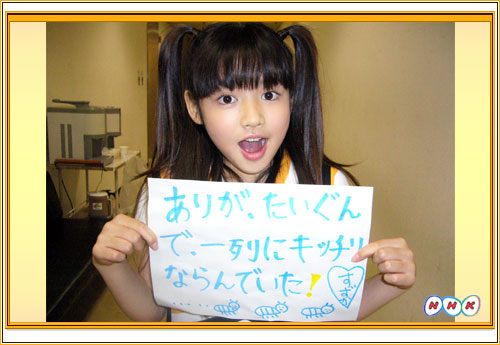 ありが、たいぐん
で、一列にキッチリ
ならんでいた!
すず
NHK